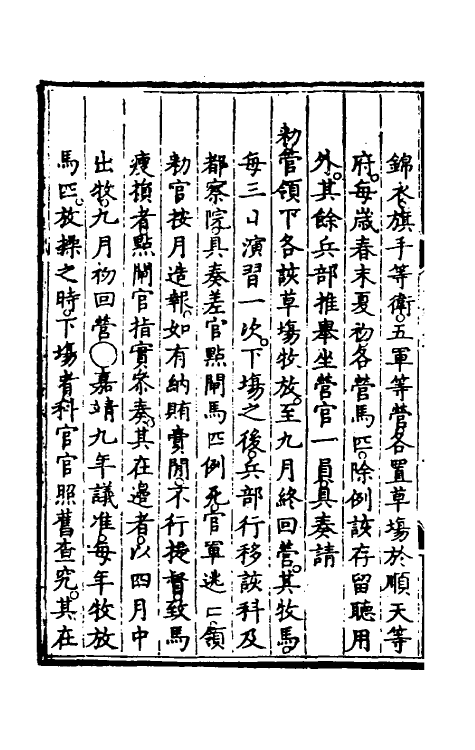 錦衣旗手等衛五軍等營各置草塲於順天等
府每歲春末夏初各營馬匹除例該存留聽用
外其餘兵部推舉坐營官一員具奏請
勑管領下各該草塲牧放至九月終回營其牧馬
每三日演習一次下塲之後兵部行移該科及
都察院具奏差官點閘馬匹例死官軍逃亡領
勑官按月造報如有納賄賣閒不行提督致馬
瘦損者點閘官指實參奏其在邊者以四月中
出牧九月初回營○嘉靖九年議准每年牧放
馬匹放操之時下塲者科官官照舊查究其在